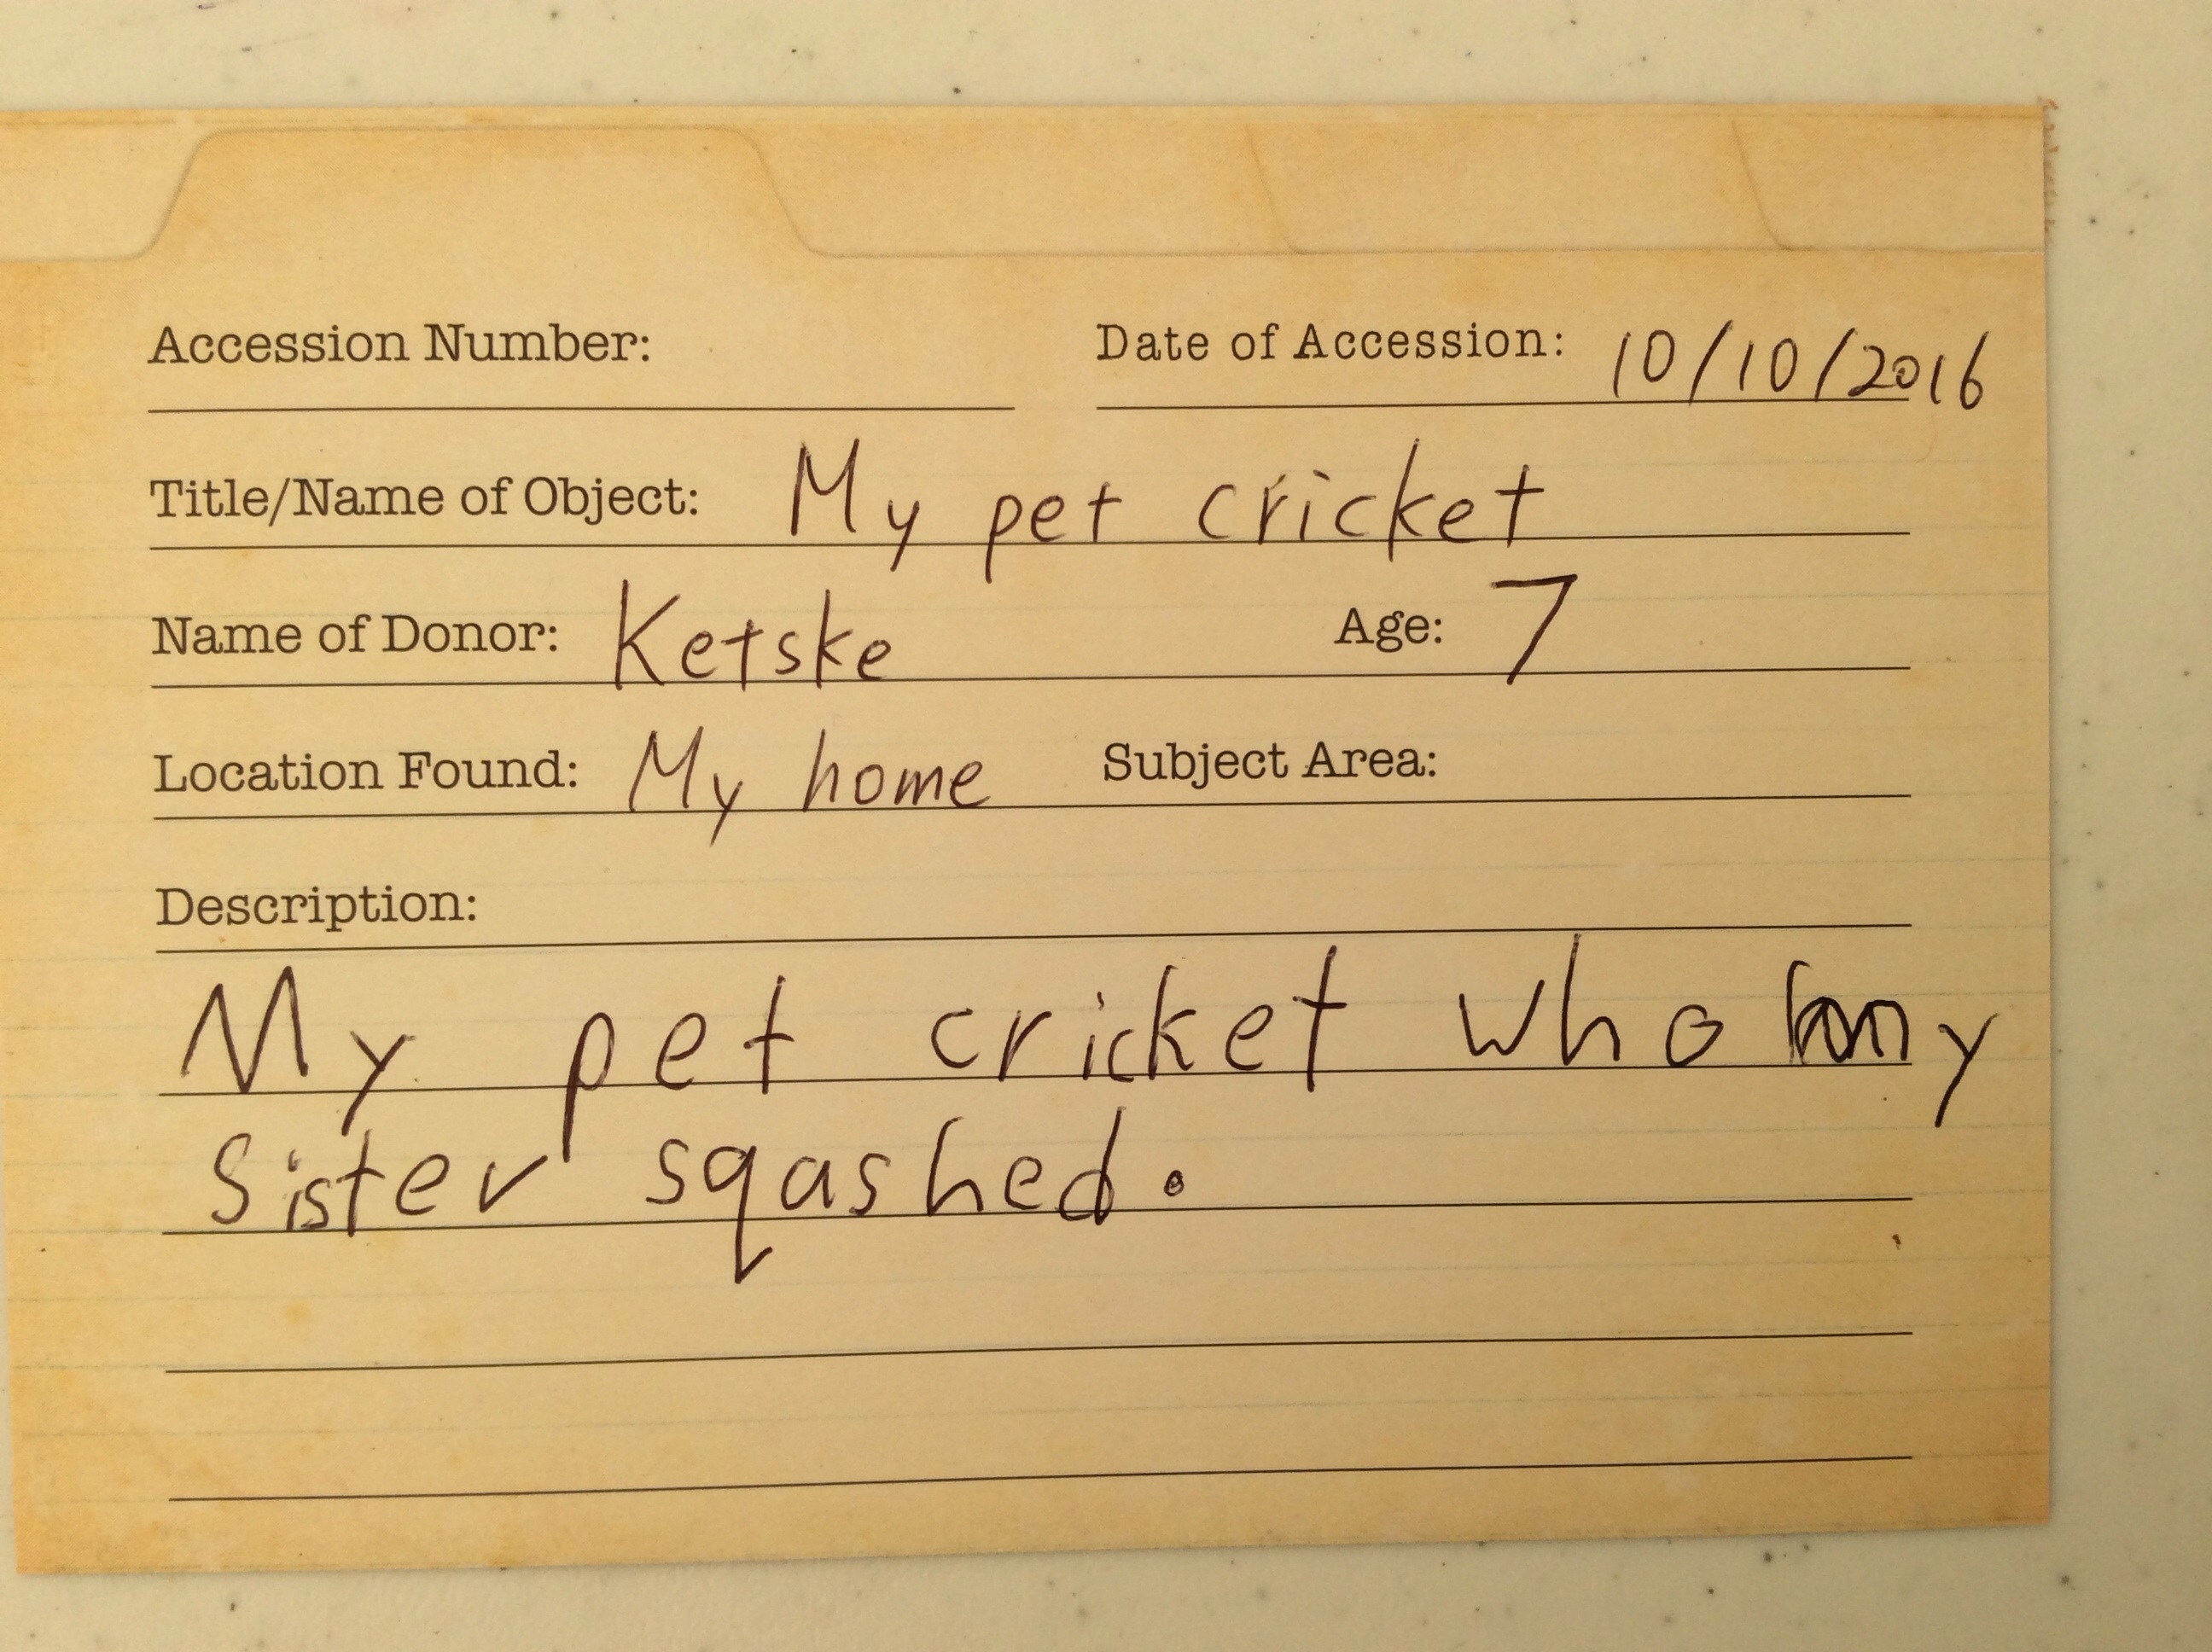 Accession Number: Date of Accession: 10/10/2016
Title/Name of Object: My pet cricket
Name of Donor: Ketske Age: 7
Location Found: My home Subject Area:
Description:
My pet cricket who my
sister sqashed.